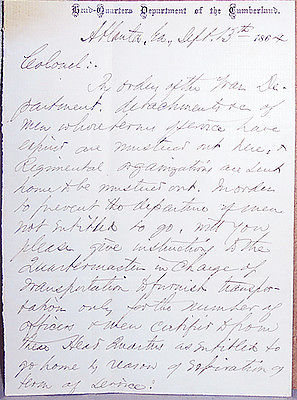 Head-Quarters Department of the Cumberland.
Atlanta, Ga, Sept. 13th 1864
Colonel:-
By order of the War De-
partment, detachments of
men, whose terms of service have
expired are mustered out here, &
Regimental organizations are sent
home to be mustered out. In order
to prevent the departure of men
not entitled to go, will you
please give instructions to the
Quartermaster in Charge of
transportation to furnish transpor-
tation only for the number of
officers & men certified to from
these Head Quarters as entitled to
go home by reason of expiration of
term of service: